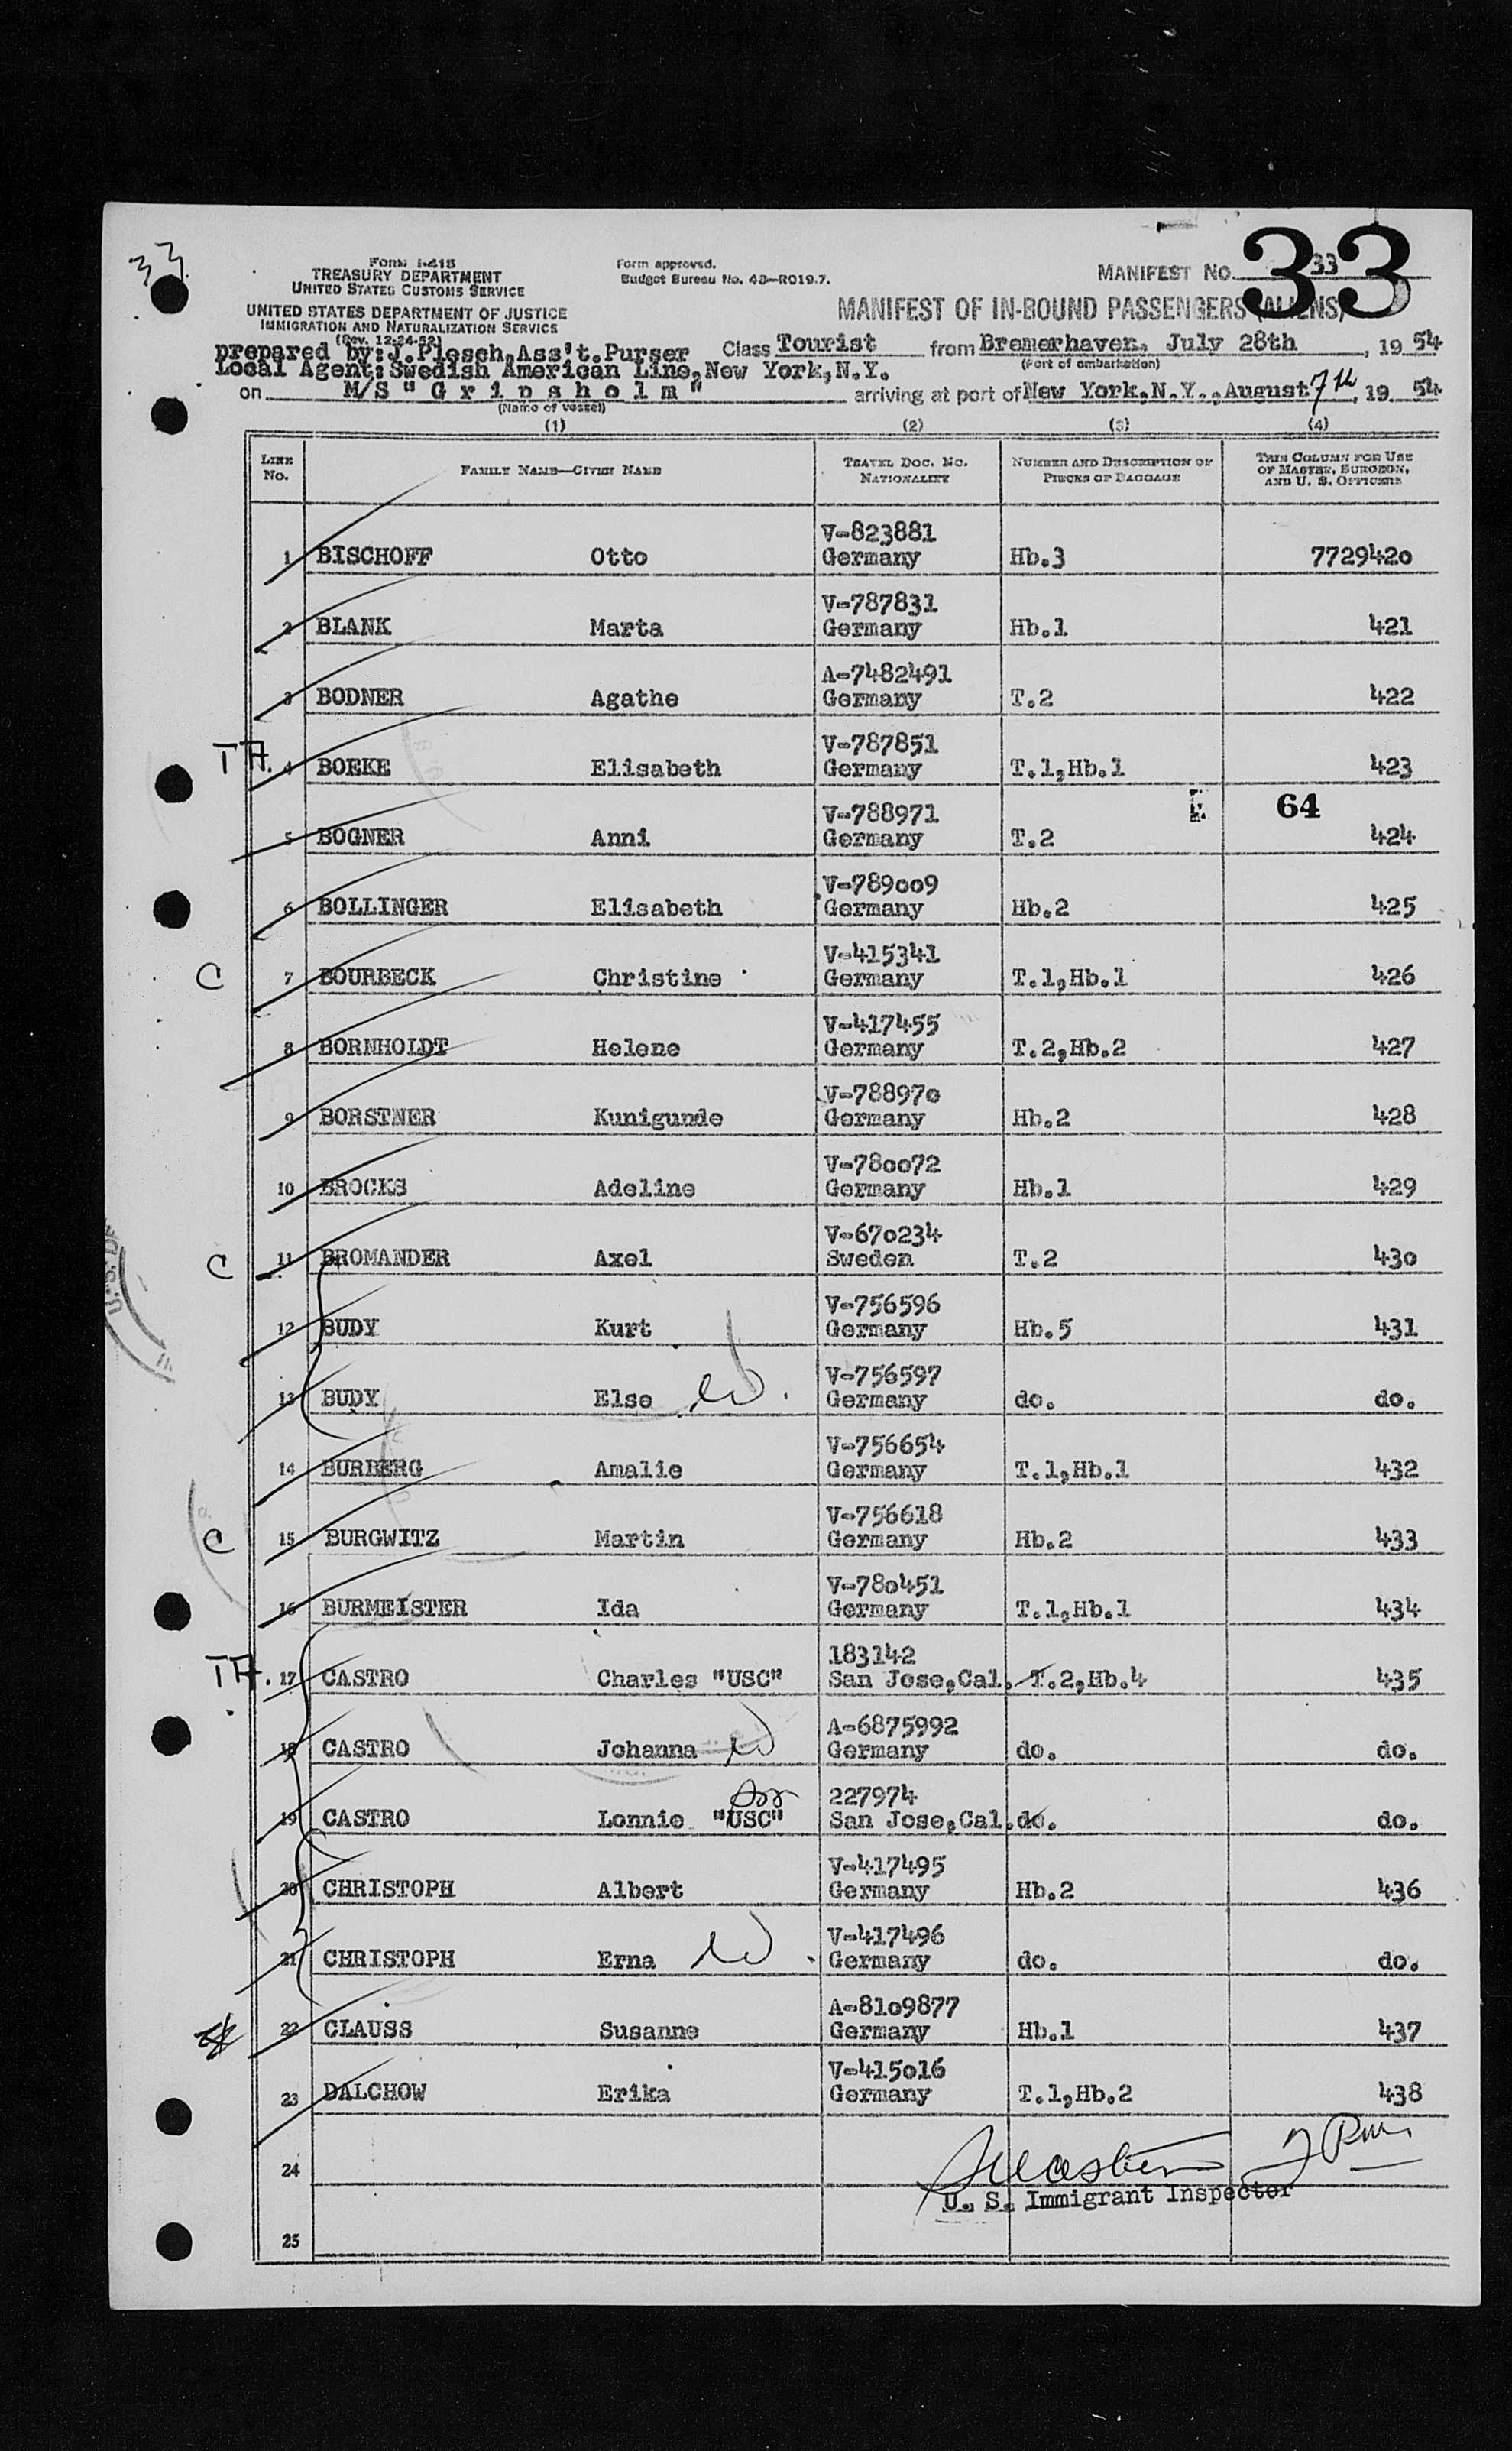 33
Form I-418
TREASURY DEPARTMENT
UNITED STATES CUSTOMS SERVICE
UNITED STATES DEPARTMENT OF JUSTICE
IMMIGRATION AND NATURALIZATION SERVICE
(Rev. 12-24-52)
Form approved.
Budget Bureau No. 43-R019.7.
MANIFEST NO. 33
33
MANIFEST OF IN-BOUND PASSENGERS (ALIENS)
prepared by:J.Plesch,Ass't.Purser Class Tourist from Bremerhaven, July 28th, 1954
Local Agent:Swedish American Line,New York,N.Y. (Port of embarkation)
on M/S "Gripsholm" arriving at port of New York,N.Y.,August 7th, 1954
(Name of vessel)
(1) (2) (3) (4)
LINE No. FAMILY NAME—GIVEN NAME TRAVEL DOC. NO. NATIONALITY NUMBER AND DESCRIPTION OF PIECES OF BAGGAGE THIS COLUMN FOR USE OF MASTER, SURGEON, AND U. S. OFFICERS
V-823881
1 BISCHOFF Otto Germany Hb.3 7729420
V-787831
2 BLANK Marta Germany Hb.1 421
A-7482491
3 BODNER Agathe Germany T.2 422
V-787851
TA. 4 BOEKE Elisabeth Germany T.1,Hb.1 423
V-788971 64
5 BOGNER Anni Germany T.2 424
V-789009
6 BOLLINGER Elisabeth Germany Hb.2 425
V-415341
C 7 BOURBECK Christine Germany T.1,Hb.1 426
V-417455
8 BORNHOLDT Helene Germany T.2,Hb.2 427
V-788970
9 BORSTNER Kunigunde Germany Hb.2 428
V-780072
10 BROCKS Adeline Germany Hb.1 429
V-670234
C 11 BROMANDER Axel Sweden T.2 430
V-756596
12 BUDY Kurt Germany Hb.5 431
V-756597
13 BUDY Else W Germany do. do.
V-756654
14 BURBERG Amalie Germany T.1,Hb.1 432
V-756618
C 15 BURGWITZ Martin Germany Hb.2 433
V-780451
16 BURMEISTER Ida Germany T.1,Hb.1 434
183142
TA. 17 CASTRO Charles "USC" San Jose,Cal. T.2,Hb.4 435
A-6875992
18 CASTRO Johanna W Germany do. do.
227974
19 CASTRO Lonnie "USC" San Jose,Cal. do. do.
V-417495
20 CHRISTOPH Albert Germany Hb.2 436
V-417496
21 CHRISTOPH Erna W Germany do. do.
A-8109877
22 CLAUSS Susanne Germany Hb.1 437
V-415016
23 DALCHOW Erika Germany T.1,Hb.2 438
24
U. S. Immigrant Inspector
25